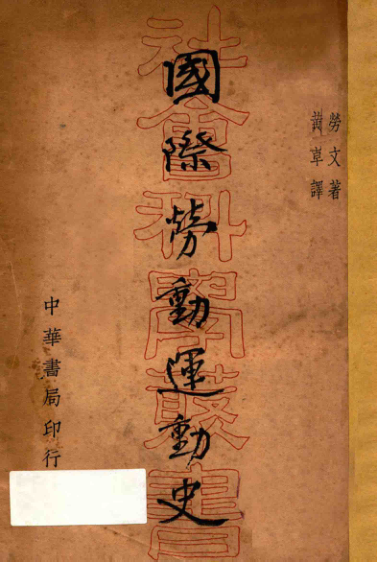 勞文著
黃卓譯
國際勞動運動史
社會科學叢書
中華書局印行